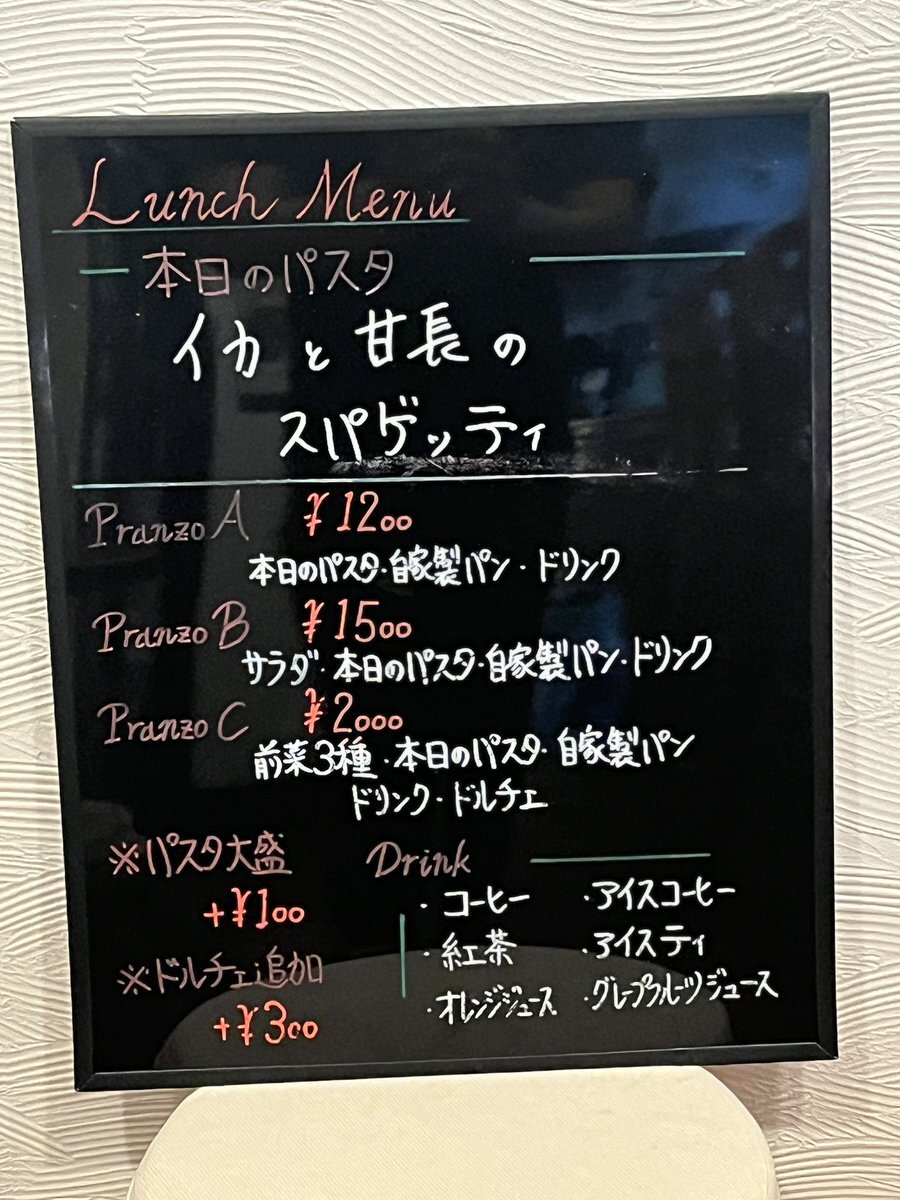 Lunch Menu
本日のパスタ
イカと甘長の
スパゲッティ
Pranzo A ¥1200
本日のパスタ・自家製パン・ドリンク
Pranzo B ¥1500
サラダ・本日のパスタ・自家製パン・ドリンク
Pranzo C ¥2000
前菜3種・本日のパスタ・自家製パン
ドリンク・ドルチェ
※パスタ大盛
+¥100
※ドルチェ追加
+¥300
Drink
・コーヒー ・アイスコーヒー
・紅茶 ・アイスティ
・オレンジジュース ・グレープフルーツジュース